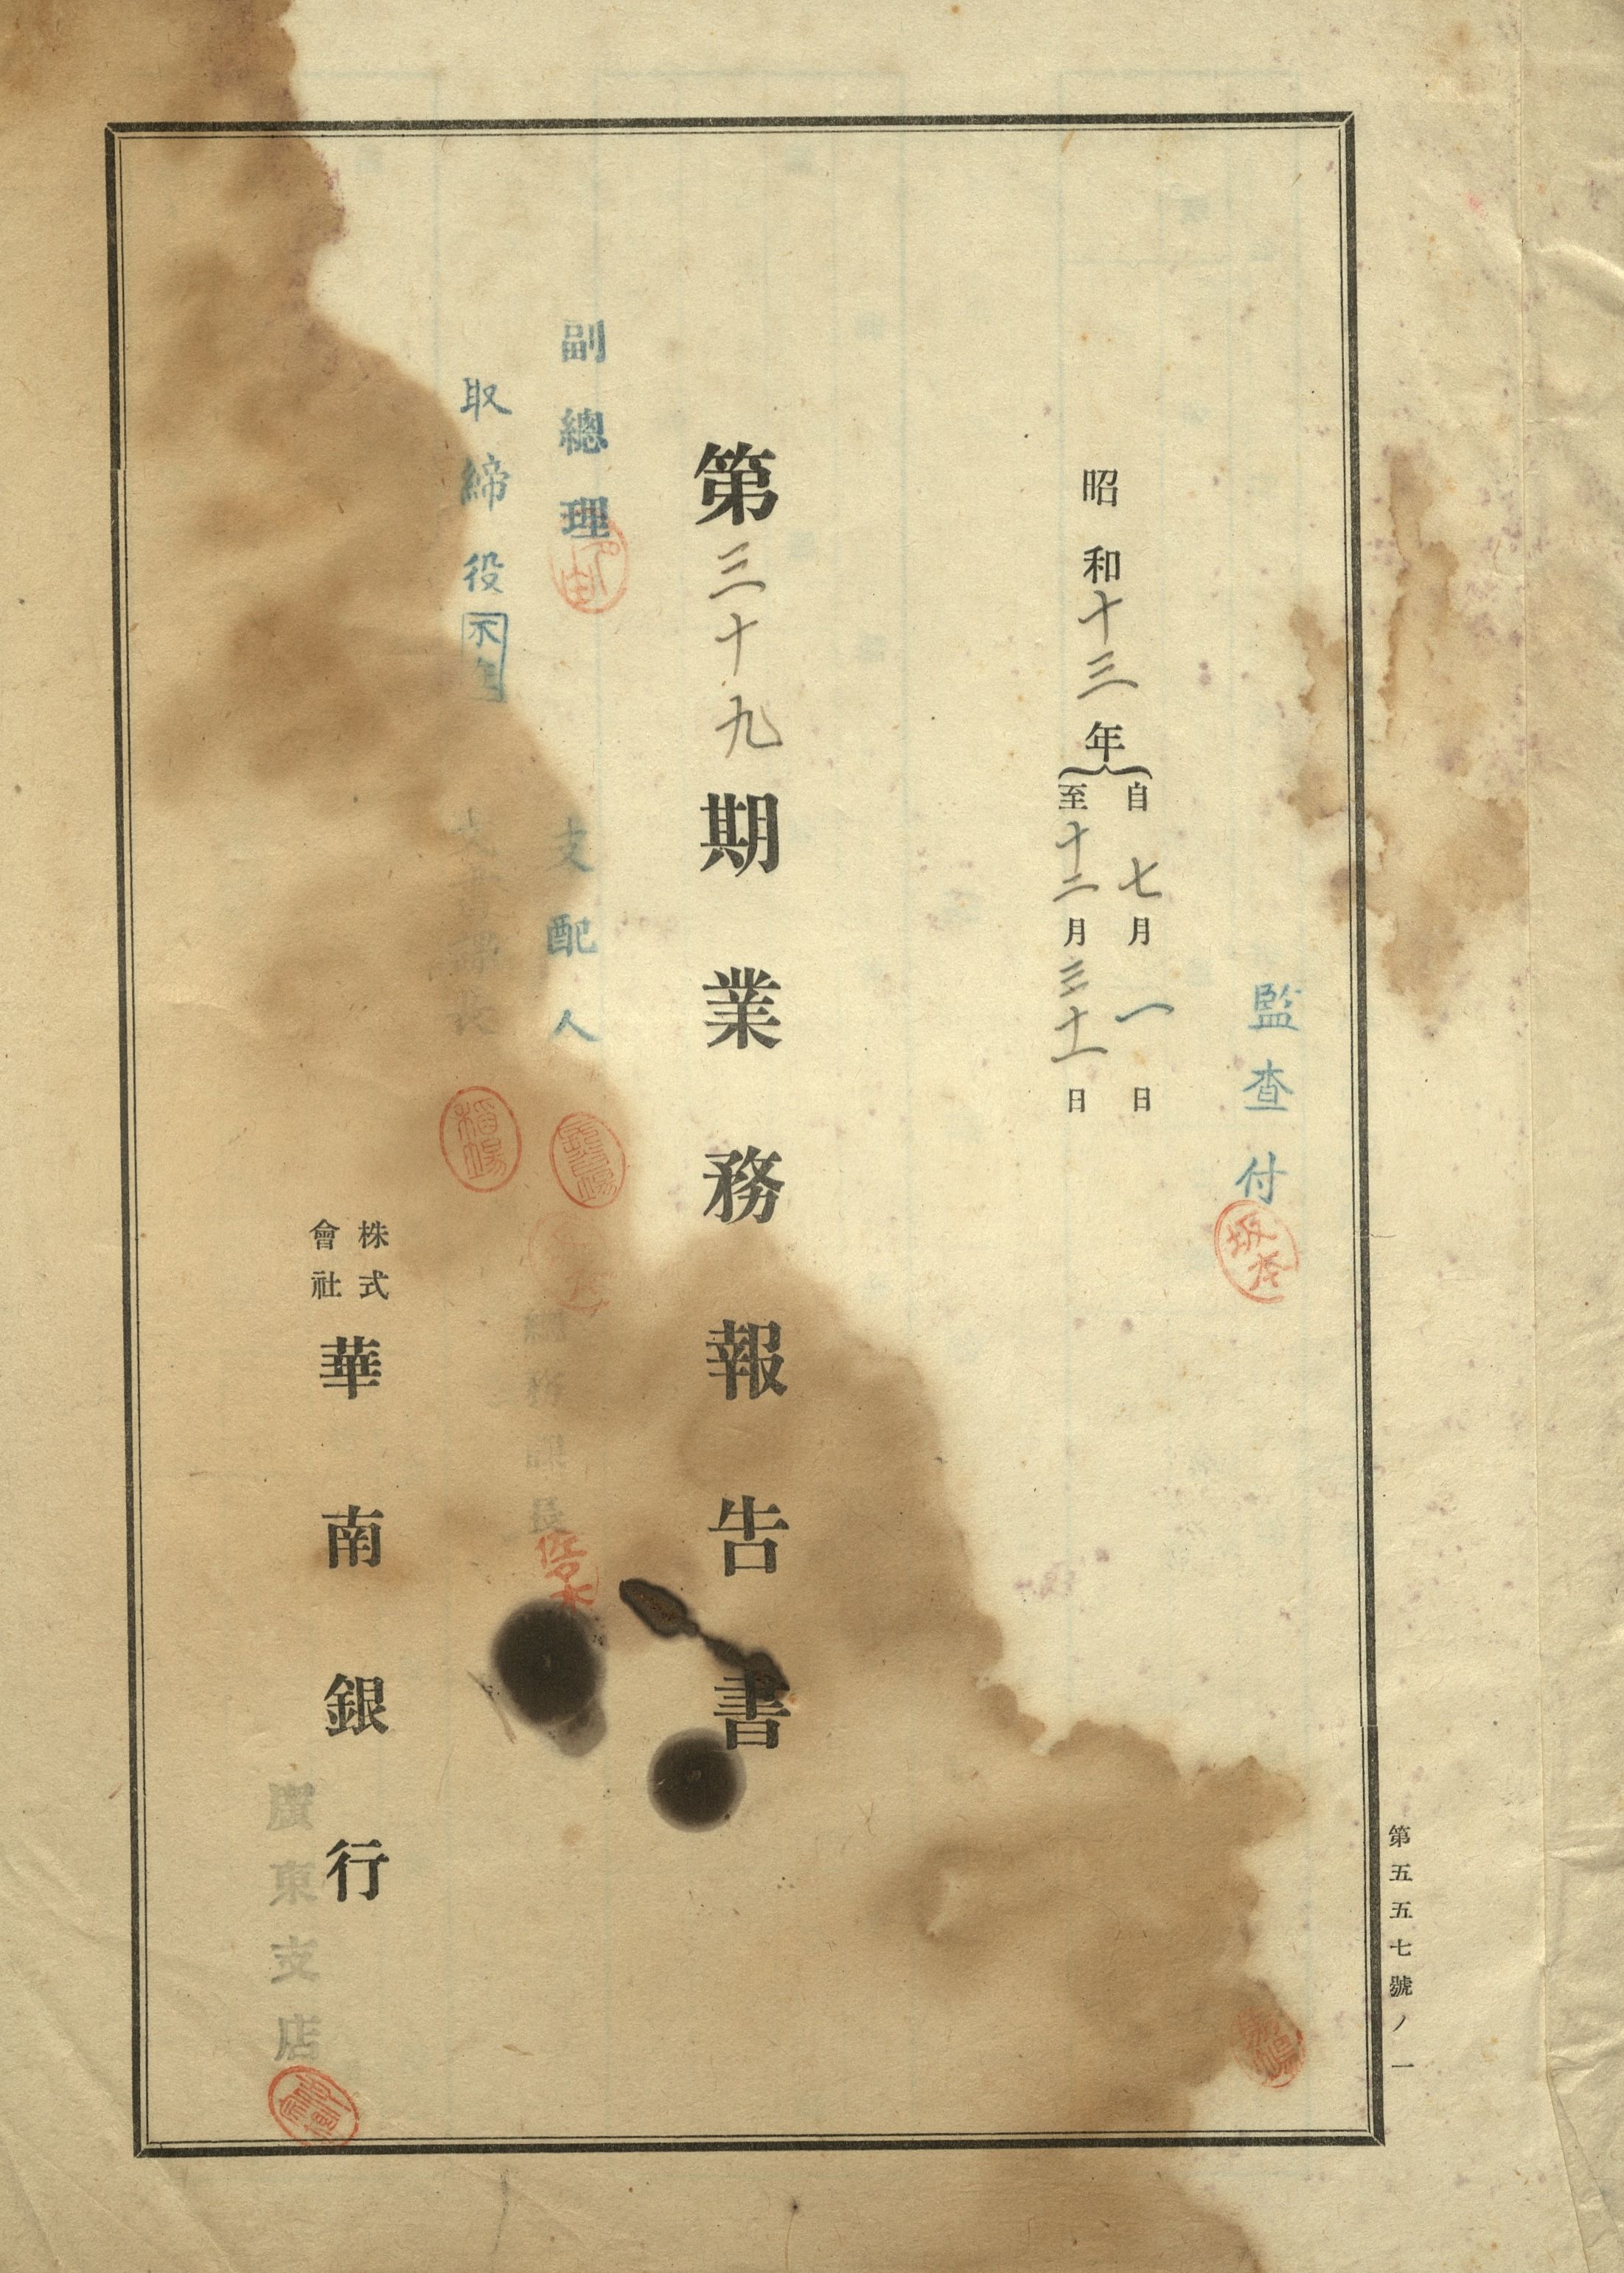 第五五七號ノ一
監査付
昭和十三年
自七月一日
至十二月三十一日
第三十九期業務報告書
副總理
支配人
總務課長
取締役不在
文書課長
株式會社華南銀行
廣東支店